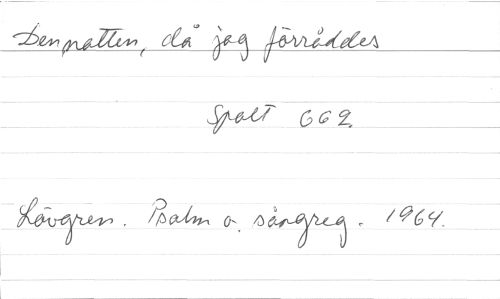 Den natten, då jag förråddes
Spalt 662.
Lövgren. Psalm o. sångreg. 1964.